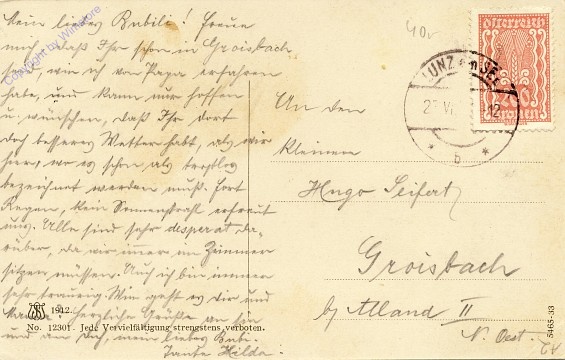 Mein liebes Bubili! Freue
mich, daß Ihr schon in Groisbach
seid, wie ich von Papa erfahren
habe, und kann nur hoffen
u. wünschen, daß Ihr dort
doch besseres Wetter habt, als wir
hier, wo es schon als trostlos
bezeichnet werden muß. Fort
Regen, kein Sonnenstrahl erfreut
uns. Alle sind sehr desperat da-
rüber, da wir immer im Zimmer
sitzen müssen. Auch ich bin immer
sehr traurig. Wie geht es dir und
Herzliche Grüße an
und an Dich, mein liebes Bubi.
Tante Hilda.
Copyright by Winstore
40r
österreich
LUNZ am SEE
VI
12
* b *
An den
kleinen
Hugo Seifert
Groisbach
by Alland II
N. Oest.
1912.
No. 12301. Jede Vervielfältigung strengstens verboten.
5465-33